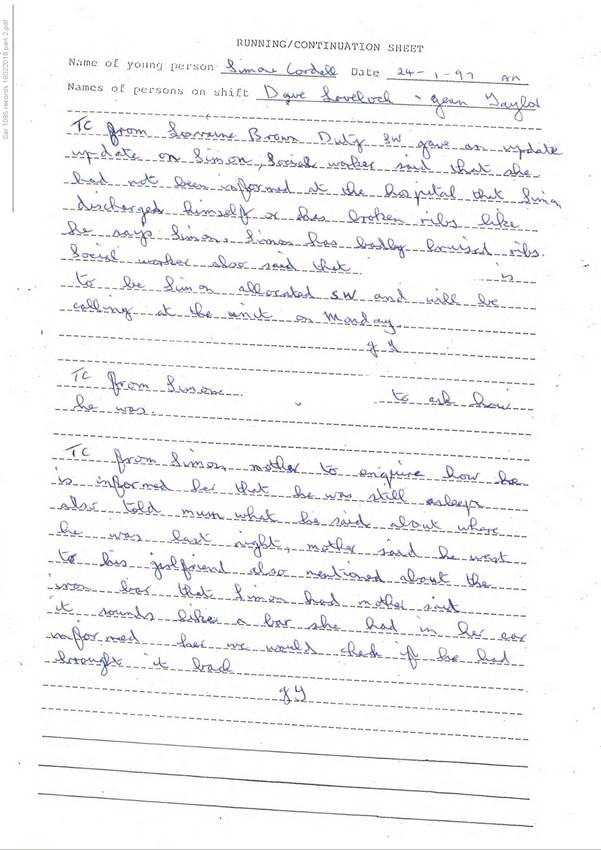 Sar 1085 records 16022019 part 2.pdf
RUNNING/CONTINUATION SHEET
Name of young person Simone Cordell Date 24-1-97 AM
Names of persons on shift Dave Lovelock - Jean Taylor
TC from Lorraine Brown Duty SW gave an update
update on Simon, Social worker said that she
had not been informed at the hospital that Simon
discharged himself or has broken ribs like
he says Simon. Simon has badly bruised ribs.
Social worker also said that is
to be Simon allocated SW and will be
calling at the unit on Monday
TC from Simone to ask how
he was.
TC from Simon mother to enquire how he
is informed her that he was still asleep
also told mum what he said about where
he was last night, mother said he went
to his girlfriend also mentioned about the
iron bar that Simon had mother said
it sounds like a bar she had in her car
informed her we would check if he had
brought it back